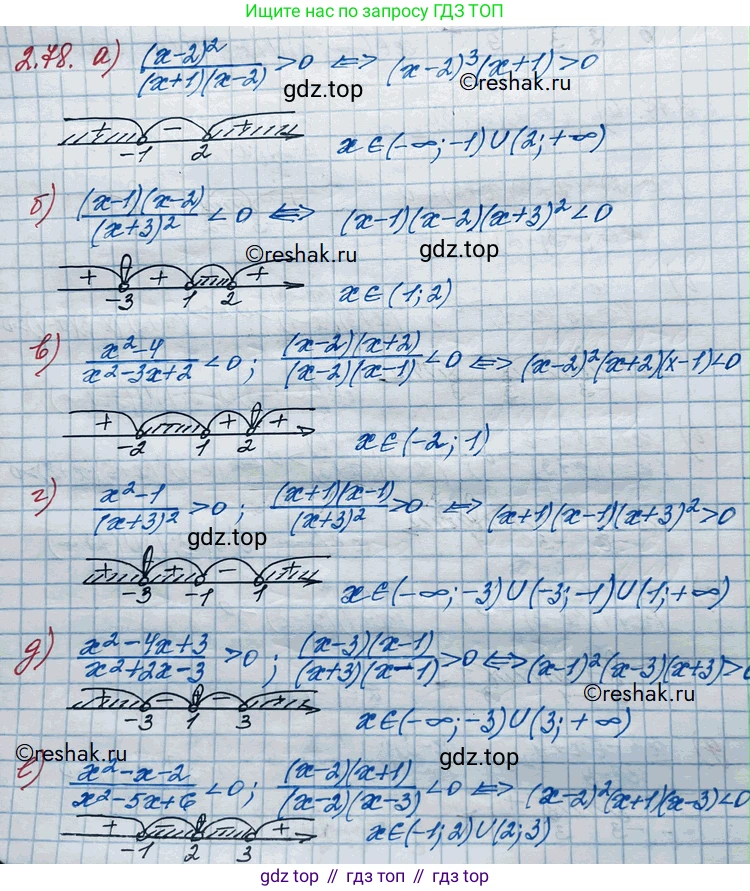 Ищите нас по запросу ГДЗ ТОП
2.78. а) (x-2)²/((x+1)(x-2)) > 0 ⇔ (x-2)³(x+1) > 0
gdz.top
©reshak.ru
+ - +
-1 2
x ∈ (-∞; -1) ∪ (2; +∞)
б) (x-1)(x-2)/(x+3)² < 0 ⇔ (x-1)(x-2)(x+3)² < 0
©reshak.ru
gdz.top
+ + +
-3 1 2
x ∈ (1; 2)
в) (x²-4)/(x²-3x+2) < 0; (x-2)(x+2)/((x-2)(x-1)) < 0 ⇔ (x-2)²(x+2)(x-1) < 0
+ + +
-2 1 2
x ∈ (-2; 1)
г) (x²-1)/(x+3)² > 0; (x+1)(x-1)/(x+3)² > 0 ⇔ (x+1)(x-1)(x+3)² > 0
gdz.top
+ + - +
-3 -1 1
x ∈ (-∞; -3) ∪ (-3; -1) ∪ (1; +∞)
д) (x²-4x+3)/(x²+2x-3) > 0; (x-3)(x-1)/((x+3)(x-1)) > 0 ⇔ (x-1)²(x-3)(x+3) > 0
©reshak.ru
+ - - +
-3 1 3
x ∈ (-∞; -3) ∪ (3; +∞)
©reshak.ru
gdz.top
е) (x²-x-2)/(x²-5x+6) < 0; (x-2)(x+1)/((x-2)(x-3)) < 0 ⇔ (x-2)²(x+1)(x-3) < 0
+ +
-1 2 3
x ∈ (-1; 2) ∪ (2; 3)
gdz top // гдз топ // gdz.top